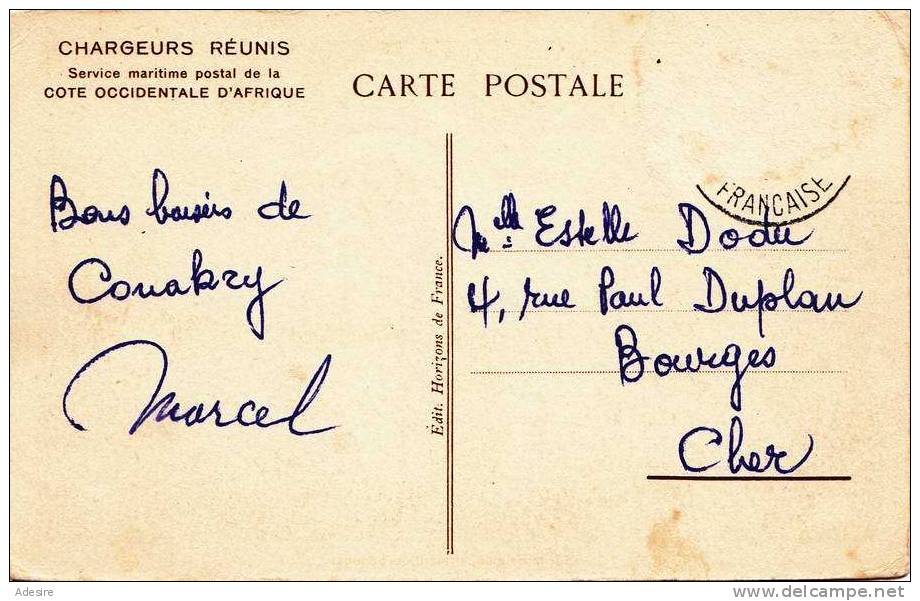 CHARGEURS RÉUNIS
Service maritime postal de la
COTE OCCIDENTALE D'AFRIQUE
CARTE POSTALE
FRANCAISE
Bons baisers de
Conakry
Marcel
Édit. Horizons de France.
Melle Estelle Dodu
4, rue Paul Duplan
Bourges
Cher
Adesire
delcampe.net